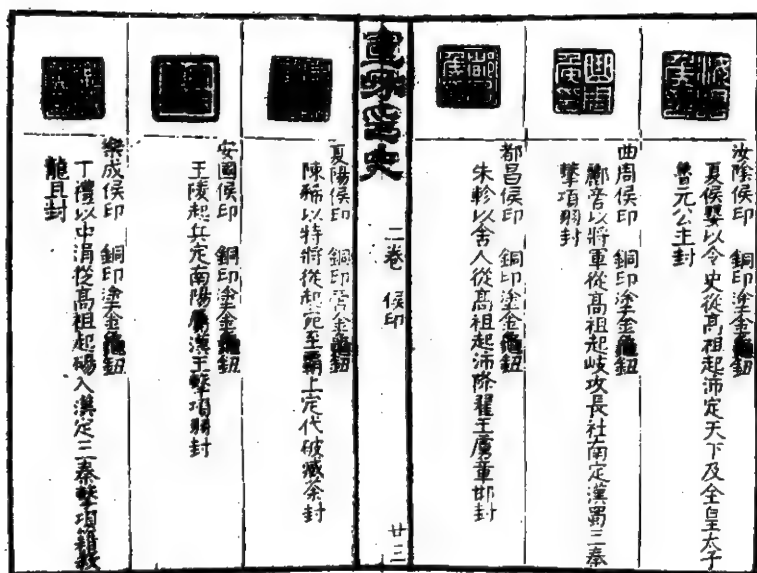 汝陰侯印　銅印塗金龜鈕
夏侯嬰以令史從高祖起沛定天下及全皇太子
魯元公主封
曲周侯印　銅印塗金龜鈕
酈啇以將軍從高祖起岐攻長社南定漢蜀三秦
擊項羽封
都昌侯印　銅印塗金龜鈕
朱軫以舍人從高祖起沛降翟王虜章邯封
二卷　侯印
廿三
夏陽侯印　銅印塗金龜鈕
陳豨以特將從起宛至霸上定代破臧荼封
安國侯印　銅印塗金龜鈕
王陵起兵定南陽屬漢王擊項羽封
樂成侯印　銅印塗金龜鈕
丁禮以中涓從高祖起碭入漢定三秦擊項籍殺
龍且封